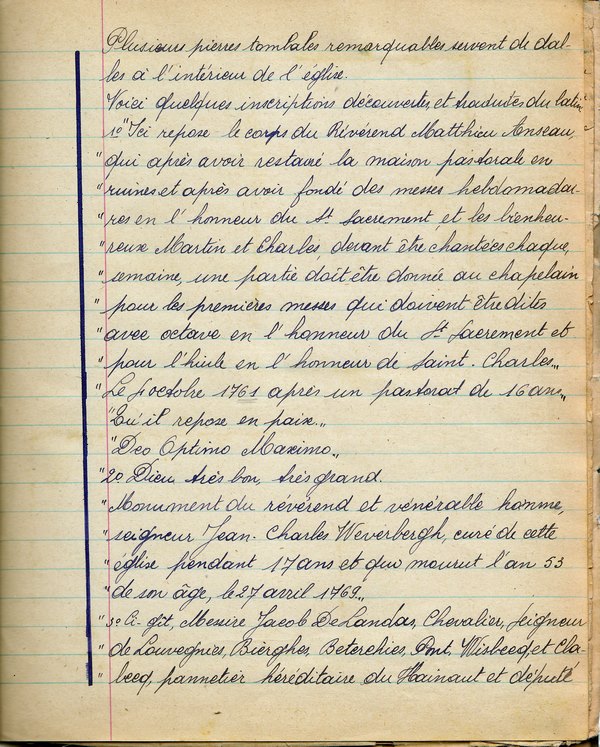 Plusieurs pierres tombales remarquables servent de dal-
les à l'intérieur de l'église.
Voici quelques inscriptions découvertes, et traduites du latin
1o "Ici repose le corps du Révérend Matthieu Anseau,
" qui après avoir restauré la maison pastorale en
" ruines et après avoir fondé des messes hebdomadai-
" res en l'honneur du St Sacrement, et les bienheu-
" reux Martin et Charles, devant être chantées chaque,
" semaine, une partie doit être donnée au chapelain
" pour les premières messes qui doivent être dites
" avec octave en l'honneur du St Sacrement et
" pour l'huile en l'honneur de Saint. Charles„
" Le octobre 1761 après un pastorat de 16 ans„
" Qu'il repose en paix.„
" Deo Optimo Maximo„
" 2o Dieu très bon, très grand.
" Monument du révérend et vénérable homme,
" seigneur Jean-Charles Weverbergh, curé de cette
" église pendant 17 ans et qui mourut l'an 53
" de son âge, le 27 avril 1769„
" 3o Ci-gît, Messire Jacob De Landas, Chevalier, Seigneur
" de Louvegnies, Bierghes Beterchies, Pont, Wisbecq et Cla-
" becq, pannetier héréditaire du Hainaut et député